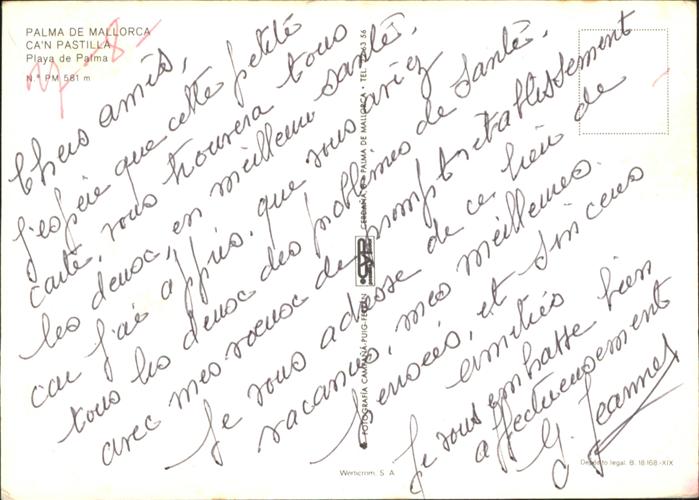 PALMA DE MALLORCA
CA'N PASTILLA
Playa de Palma
N.º PM 581 m
Chers amis,
J'espère que cette petite
carte, vous trouvera tous
les deux, en meilleure santé,
car j'ai appris, que vous aviez
tous les deux des problèmes de santé.
avec mes voeux de prompt rétablissement
Je vous adresse de ce lieu de
vacances, mes meilleures
pensées, et sincères
amitiés
Je vous embrasse bien
affectueusement
G. Jeannet
FOTOGRAFÍA CAMPAÑÁ-PUIG-FERRÁN
CERDAÑA, PALMA DE MALLORCA - TEL.
Werticrom, S. A.
Depósito legal: B. 18.168.-XIX